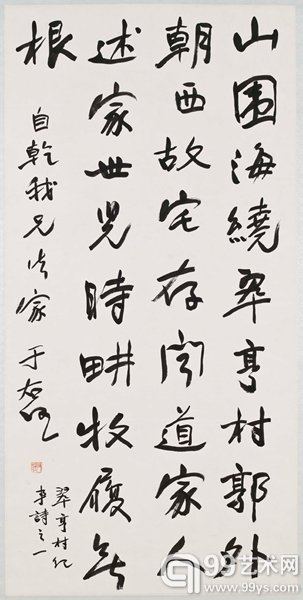 山圍海繞翠亨村郭外
朝西故宅存聞道家人
述家世兒時畊牧履無
根
自乾我兄法家 于右任
翠亨村紀
事詩之一
99艺术网
www.99ys.com